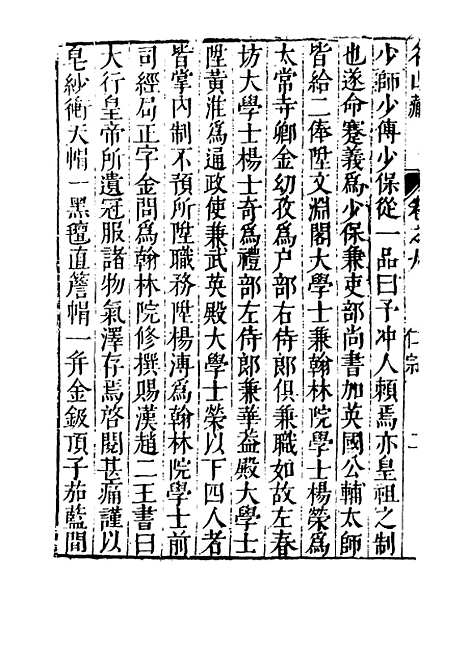 名山藏 卷之九 仁宗 二
少師少傅少保從一品曰予冲人賴焉亦皇祖之制
也遂命蹇義爲少保兼吏部尚書加英國公輔太師
皆給二俸陞文淵閣大學士兼翰林院學士楊榮爲
太常寺卿金幼孜爲户部右侍郎俱兼職如故左春
坊大學士楊士奇爲禮部左侍郎兼華葢殿大學士
陞黃淮爲通政使兼武英殿大學士榮以下四人者
皆掌內制不預所陞職務陞楊溥爲翰林院學士前
司經局正字金問爲翰林院修撰賜漢趙二王書曰
大行皇帝所遺冠服諸物氣澤存焉啓閱甚痛謹以
皂紗衝天帽一黑氊直簷帽一并金鈒頂子茄藍間